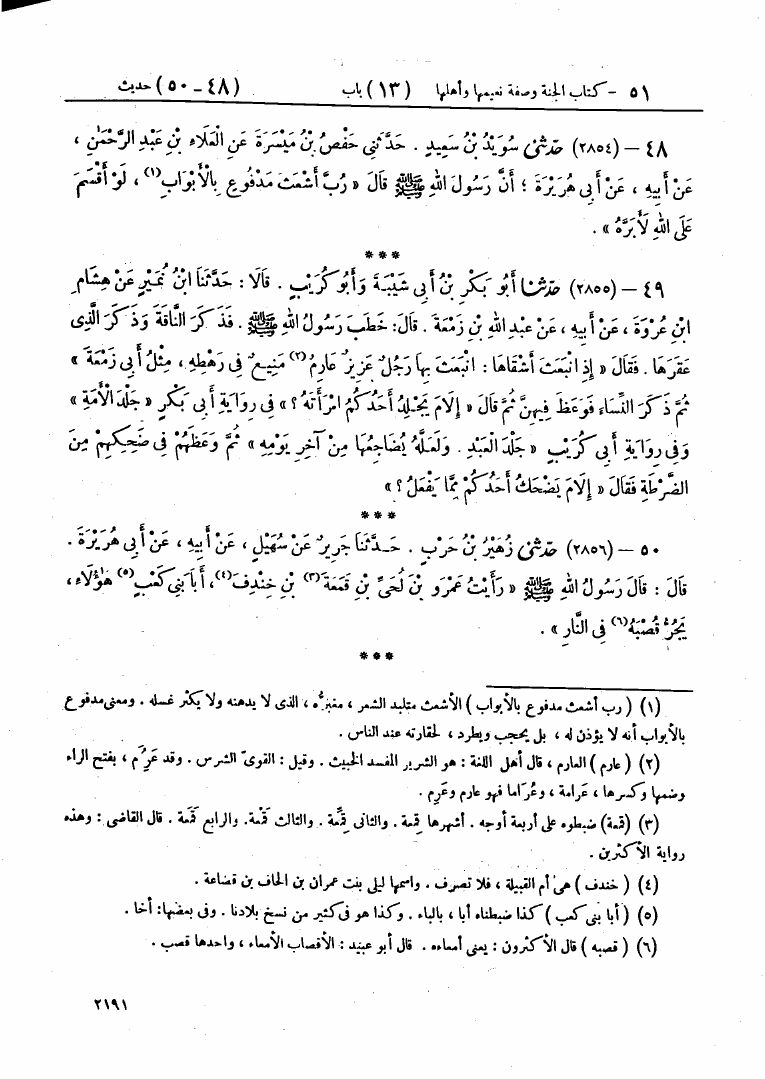 ٥١ - كتاب الجنة وصفة نعيمها وأهلها (١٣) باب (٤٨ - ٥٠) حديث
٤٨ - (٢٨٥٤) حَدَّثَنِي سُوَيْدُ بْنُ سَعِيدٍ . حَدَّثَنِي حَفْصُ بْنُ مَيْسَرَةَ عَنِ الْعَلَاءِ بْنِ عَبْدِ الرَّحْمَٰنِ ،
عَنْ أَبِيهِ ، عَنْ أَبِي هُرَيْرَةَ ؛ أَنَّ رَسُولَ اللهِ ﷺ قَالَ « رُبَّ أَشْعَثَ مَدْفُوعٍ بِالْأَبْوَابِ(١) ، لَوْ أَقْسَمَ
عَلَى اللهِ لَأَبَرَّهُ » .
***
٤٩ - (٢٨٥٥) حَدَّثَنَا أَبُو بَكْرِ بْنُ أَبِي شَيْبَةَ وَأَبُو كُرَيْبٍ . قَالَا : حَدَّثَنَا ابْنُ نُمَيْرٍ عَنْ هِشَامِ
ابْنِ عُرْوَةَ ، عَنْ أَبِيهِ ، عَنْ عَبْدِ اللهِ بْنِ زَمْعَةَ . قَالَ : خَطَبَ رَسُولُ اللهِ ﷺ . فَذَكَرَ النَّاقَةَ وَذَكَرَ الَّذِي
عَقَرَهَا . فَقَالَ « إِذِ انْبَعَثَ أَشْقَاهَا : انْبَعَثَ بِهَا رَجُلٌ عَزِيزٌ عَارِمٌ(٢) مَنِيعٌ فِي رَهْطِهِ ، مِثْلُ أَبِي زَمْعَةَ »
ثُمَّ ذَكَرَ النِّسَاءَ فَوَعَظَ فِيهِنَّ ثُمَّ قَالَ « إِلَامَ يَجْلِدُ أَحَدُكُمُ امْرَأَتَهُ ؟ » فِي رِوَايَةِ أَبِي بَكْرٍ « جَلْدَ الْأَمَةِ »
وَفِي رِوَايَةِ أَبِي كُرَيْبٍ « جَلْدَ الْعَبْدِ . وَلَعَلَّهُ يُضَاجِعُهَا مِنْ آخِرِ يَوْمِهِ » ثُمَّ وَعَظَهُمْ فِي ضَحِكِهِمْ مِنَ
الضَّرْطَةِ فَقَالَ « إِلَامَ يَضْحَكُ أَحَدُكُمْ مِمَّا يَفْعَلُ ؟ »
***
٥٠ - (٢٨٥٦) حَدَّثَنِي زُهَيْرُ بْنُ حَرْبٍ . حَدَّثَنَا جَرِيرٌ عَنْ سُهَيْلٍ ، عَنْ أَبِيهِ ، عَنْ أَبِي هُرَيْرَةَ .
قَالَ : قَالَ رَسُولُ اللهِ ﷺ « رَأَيْتُ عَمْرَو بْنَ لُحَيِّ بْنِ قَمَعَةَ(٣) بْنِ خِنْدِفَ(٤) ، أَبَا بَنِي كَعْبٍ(٥) هَٰؤُلَاءِ ،
يَجُرُّ قُصْبَهُ(٦) فِي النَّارِ » .
***
(١) ( رب أشعث مدفوع بالأبواب ) الأشعث متلبد الشعر ، مغبرّه ، الذى لا يدهنه ولا يكثر غسله . ومعنى مدفوع
بالأبواب أنه لا يؤذن له ، بل يحجب ويطرد ، لحقارته عند الناس .
(٢) ( عارم ) العارم ، قال أهل اللغة : هو الشرير المفسد الخبيث . وقيل : القوىّ الشرس . وقد عَرُم ، بفتح الراء
وضمها وكسرها ، عَرامة ، وعُرَاما فهو عارم وعَرِم .
(٣) (قمعة) ضبطوه على أربعة أوجه . أشهرها قِمعة . والثانى قِمَّعة . والثالث قَمْعة . والرابع قَمَعة . قال القاضى : وهذه
رواية الأكثرين .
(٤) ( خندف ) هى أم القبيلة ، فلا تصرف . واسمها ليلى بنت عمران بن الحاف بن قضاعة .
(٥) ( أبا بنى كعب ) كذا ضبطناه أبا ، بالباء . وكذا هو فى كثير من نسخ بلادنا . وفى بعضها : أخا .
(٦) ( قصبه ) قال الأكثرون : يعنى أمعاءه . قال أبو عبيد : الأقصاب الأمعاء ، واحدها قصب .
٢١٩١